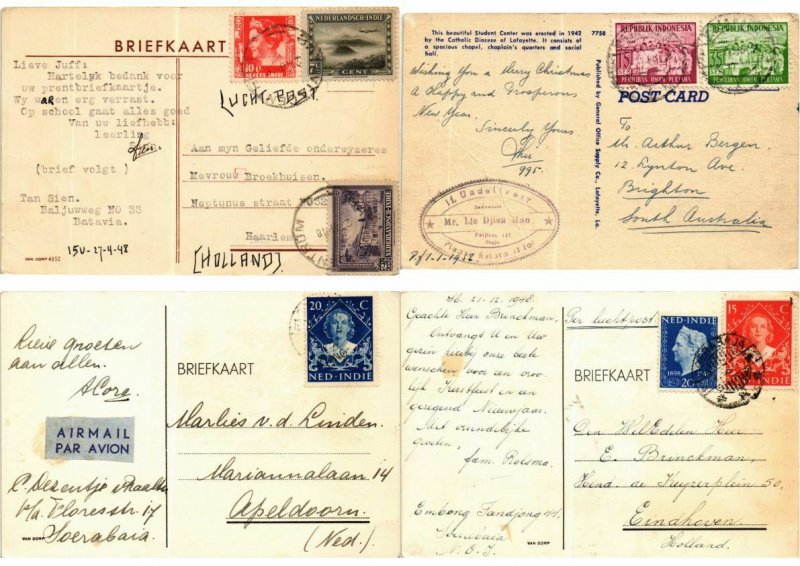 BRIEFKAART
Lieve Juff:
Hartelyk bedank voor
uw prentbriefkaartje.
Wy waren erg verrast.
Op school gaat alles goed
Van uw liefheb:
leerling
(brief volgt)
Tan Sien.
Baljuwweg NO 33
Batavia.
150-27-4-48
VAN DORP A550
NEDERL.INDIE
NEDERLANDSCH-INDIË
CENT
LUCHT-POST
Aan myn Geliefde onderwyzeres
Mevrouw Broekhuisen.
Neptunus straat
Haarlem
[HOLLAND]
NEDERLANDSCH-INDIË
This beautiful Student Center was erected in 1942
by the Catholic Diocese of Lafayette. It consists of
a spacious chapel, chaplain's quarters and social
hall.
7758
Wishing You a Merry Christmas
A Happy and Prosperous
New Year.
Sincerely Yours
995.
Mr. Lie Djien Han
Published by General Office Supply Co., Lafayette, La.
REPUBLIK INDONESIA
15 SEN
PEMILIHAN UMUM PERTAMA
REPUBLIK INDONESIA
35 SEN
PEMILIHAN UMUM PERTAMA
POST CARD
To
Mr. Arthur Bergen.
12. Lynton Ave.
Brighton
South Australia
Lieve groeten
aan allen.
ACora.
AIRMAIL
PAR AVION
C. Dezentjé
p/a Floresstr. 17
Soerabaia.
VAN DORP
20 C
NED·INDIE
BRIEFKAART
Marlies v.d. Linden.
Mariannalaan 14
Apeldoorn.
(Ned.)
Sb. 21-12-1948.
Geachte Heer Brinckman,
Ontvangt U en Uw
gezin hierbij onze beste
wenschen voor een vroo-
lijk Kerstfeest en een
gezegend Nieuwjaar.
Met vriendelijke
groeten,
fam.
Embong Tandjong 44
Soerabaia
N.O.I.
VAN DORP
Per luchtpost
NED·INDIE
1898
20
15 C
NED·INDIE
BRIEFKAART
Den WelEdelen Heer
E. Brinckman,
Hend. de Keyzerplein 50.
Eindhoven.
Holland.